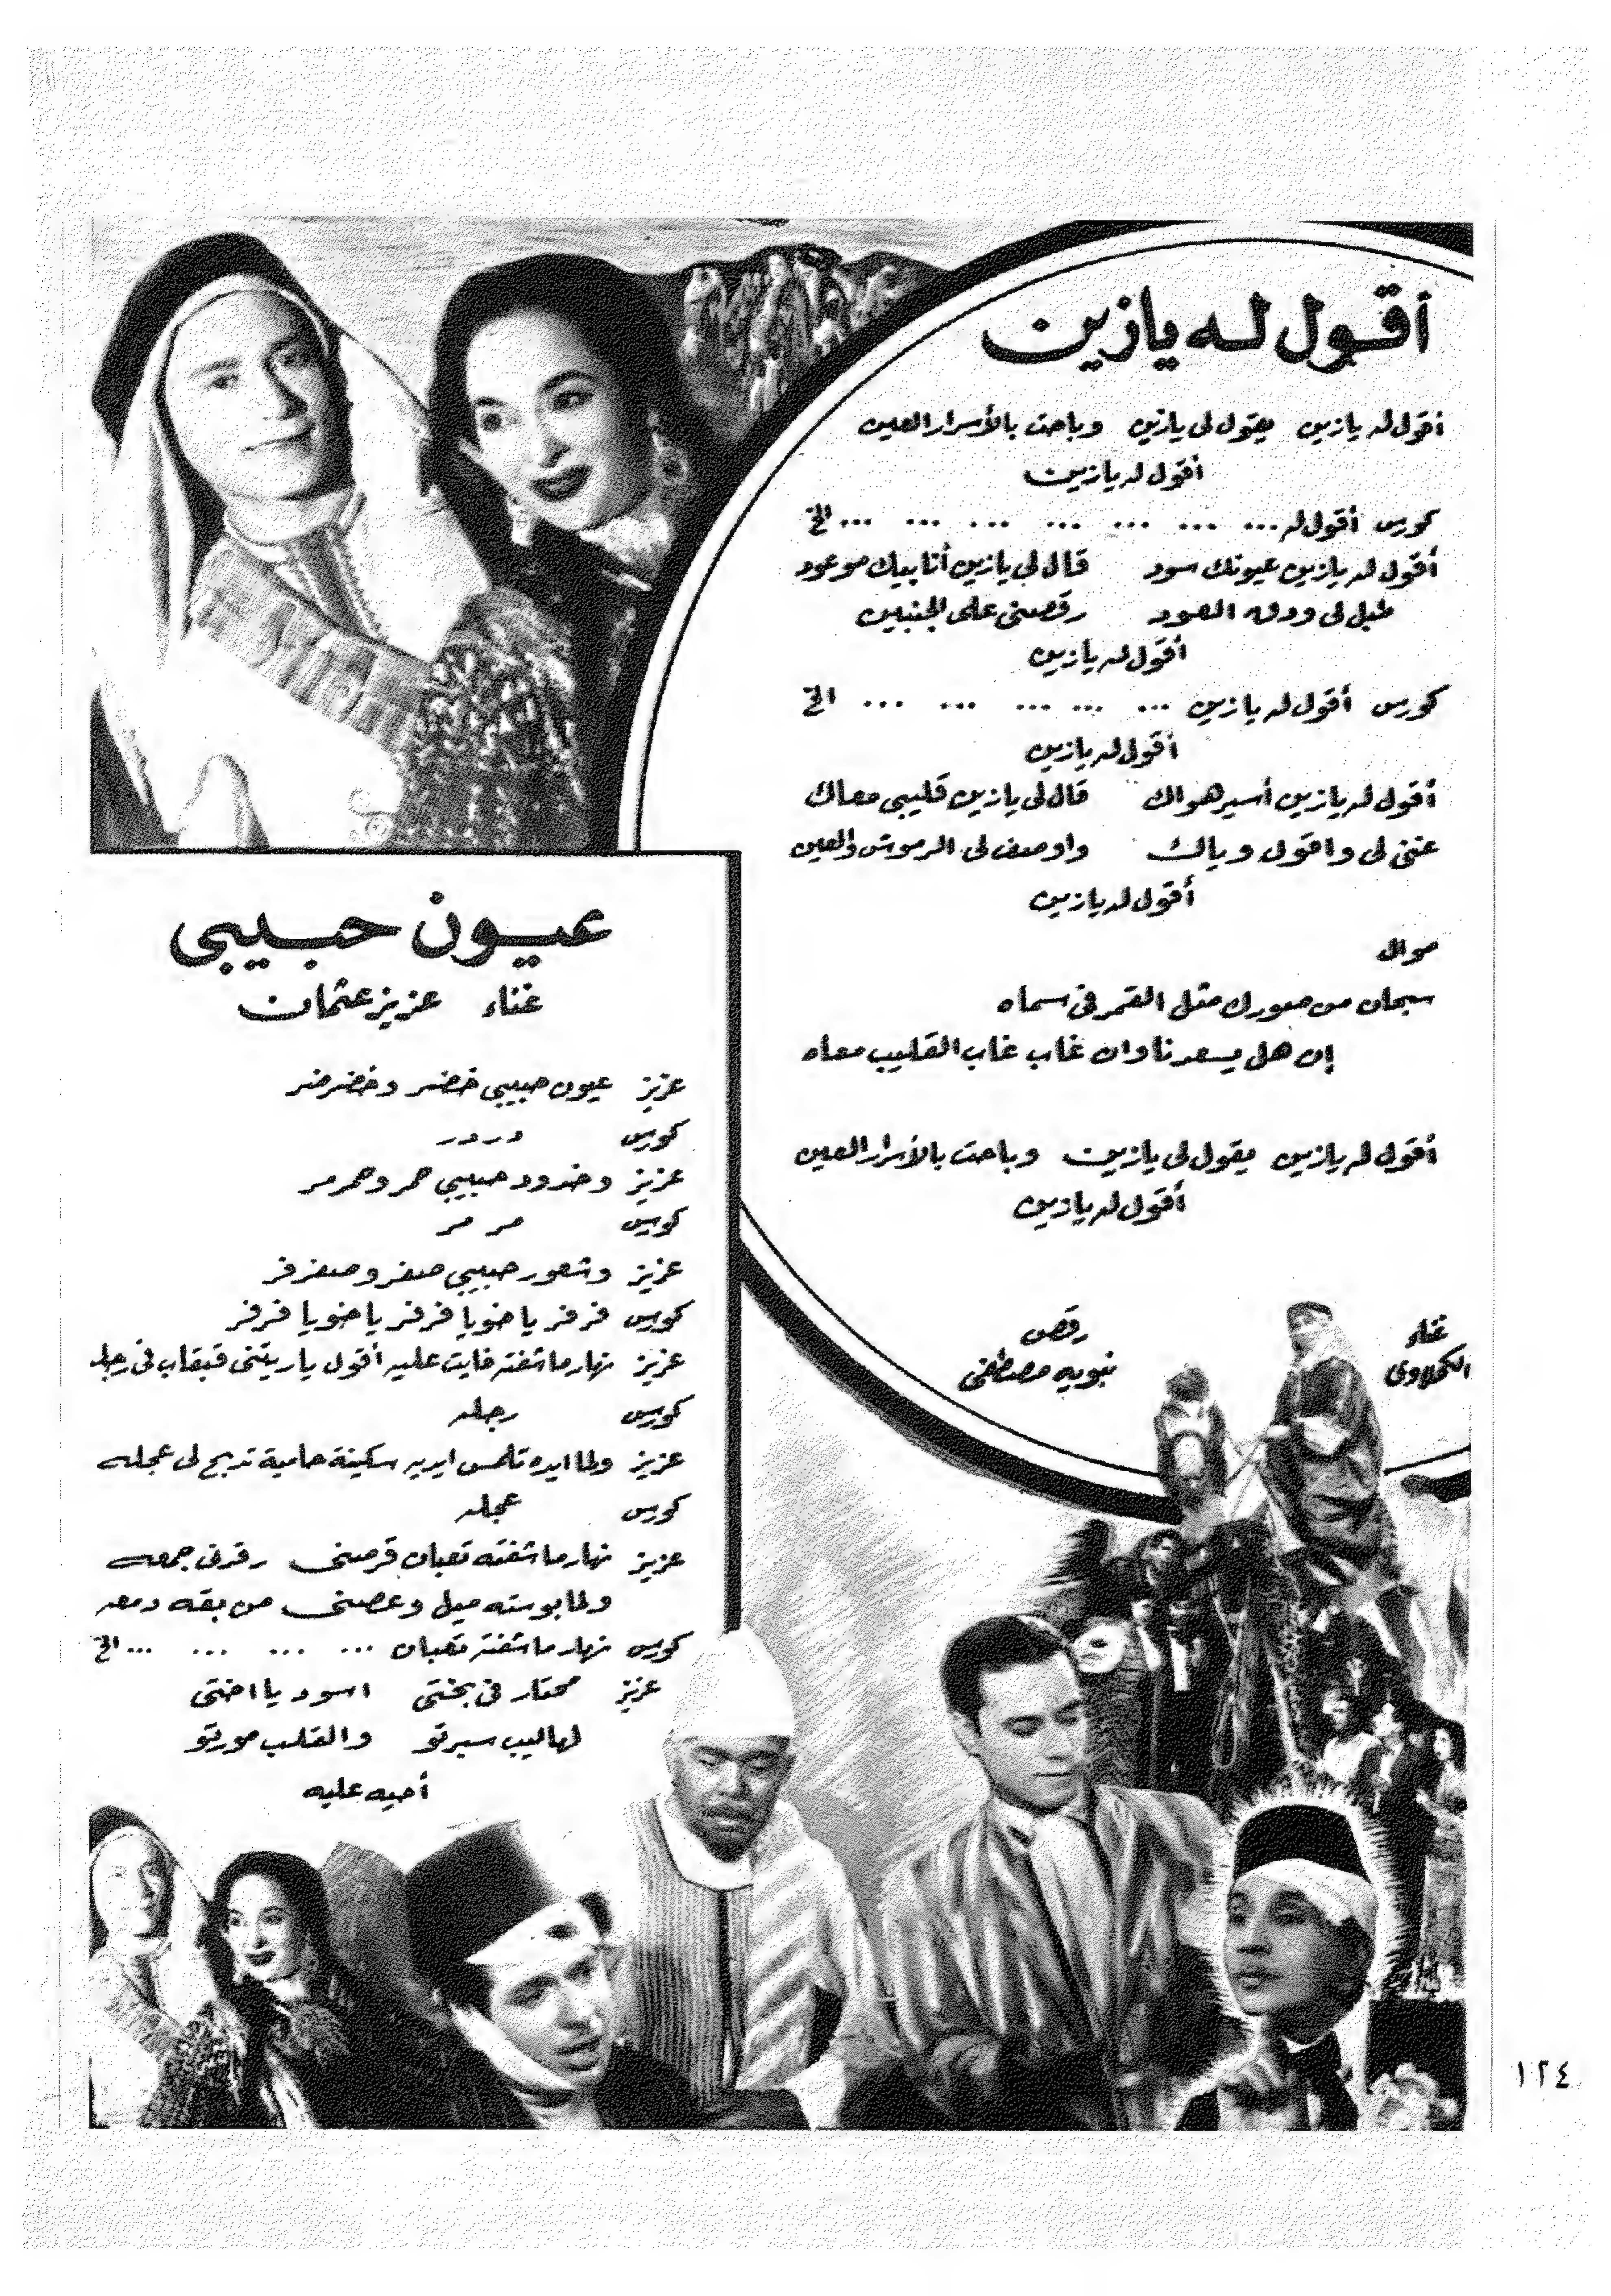 أقول له يازين
أقول له يازين يقول لى يازين وباحت بالأسرار العين
أقول له يازين
كورس أقول له ... ... ... ... ... ... ... الخ
أقول له يازين عيونك سود قال لى يازين أنا بيك موعود
طبل لى ودق العود رقصنى على الجنبين
أقول له يازين
كورس أقول له يازين ... ... ... ... ... الخ
أقول له يازين
أقول له يازين أسير هواك قال لى يازين قليبى معاك
غنى لى واقول وياك واوصف لى الرموش والعين
أقول له يازين
موال
سبحان من صورك مثل القمر فى سماه
إن هل يسعدنا وان غاب غاب القليب معاه
أقول له يازين يقول لى يازين وباحت بالأسرار العين
أقول له يازين
غناء
الكحلاوى
رقص
نبويه مصطفى
عيون حبيبى
غناء عزيز عثمان
عزيز عيون حبيبى خضر وخضرضر
كورس در در
عزيز وخدود حبيبى حمر وحمرمر
كورس مر مر
عزيز وشعور حبيبى صفر وصفرفر
كورس فرفر ياخويا فرفر ياخويا فرفر
عزيز نهار ماشفته فايت عليه أقول ياريتنى قبقاب فى رجله
كورس رجله
عزيز ولما ايده تلمس ايديه سكينة حامية تدبح لى عجله
كورس عجله
عزيز نهار ماشفته تعبان قرصنى رقدنى جمعه
ولما بوسته ميل وعضنى من بقه دمعه
كورس نهار ماشفته تعبان ... ... ... ... الخ
عزيز محتار فى بختى اسود يا اختى
لهاليب سبرتو والقلب مورتو
أحيه عليه
١٢٤